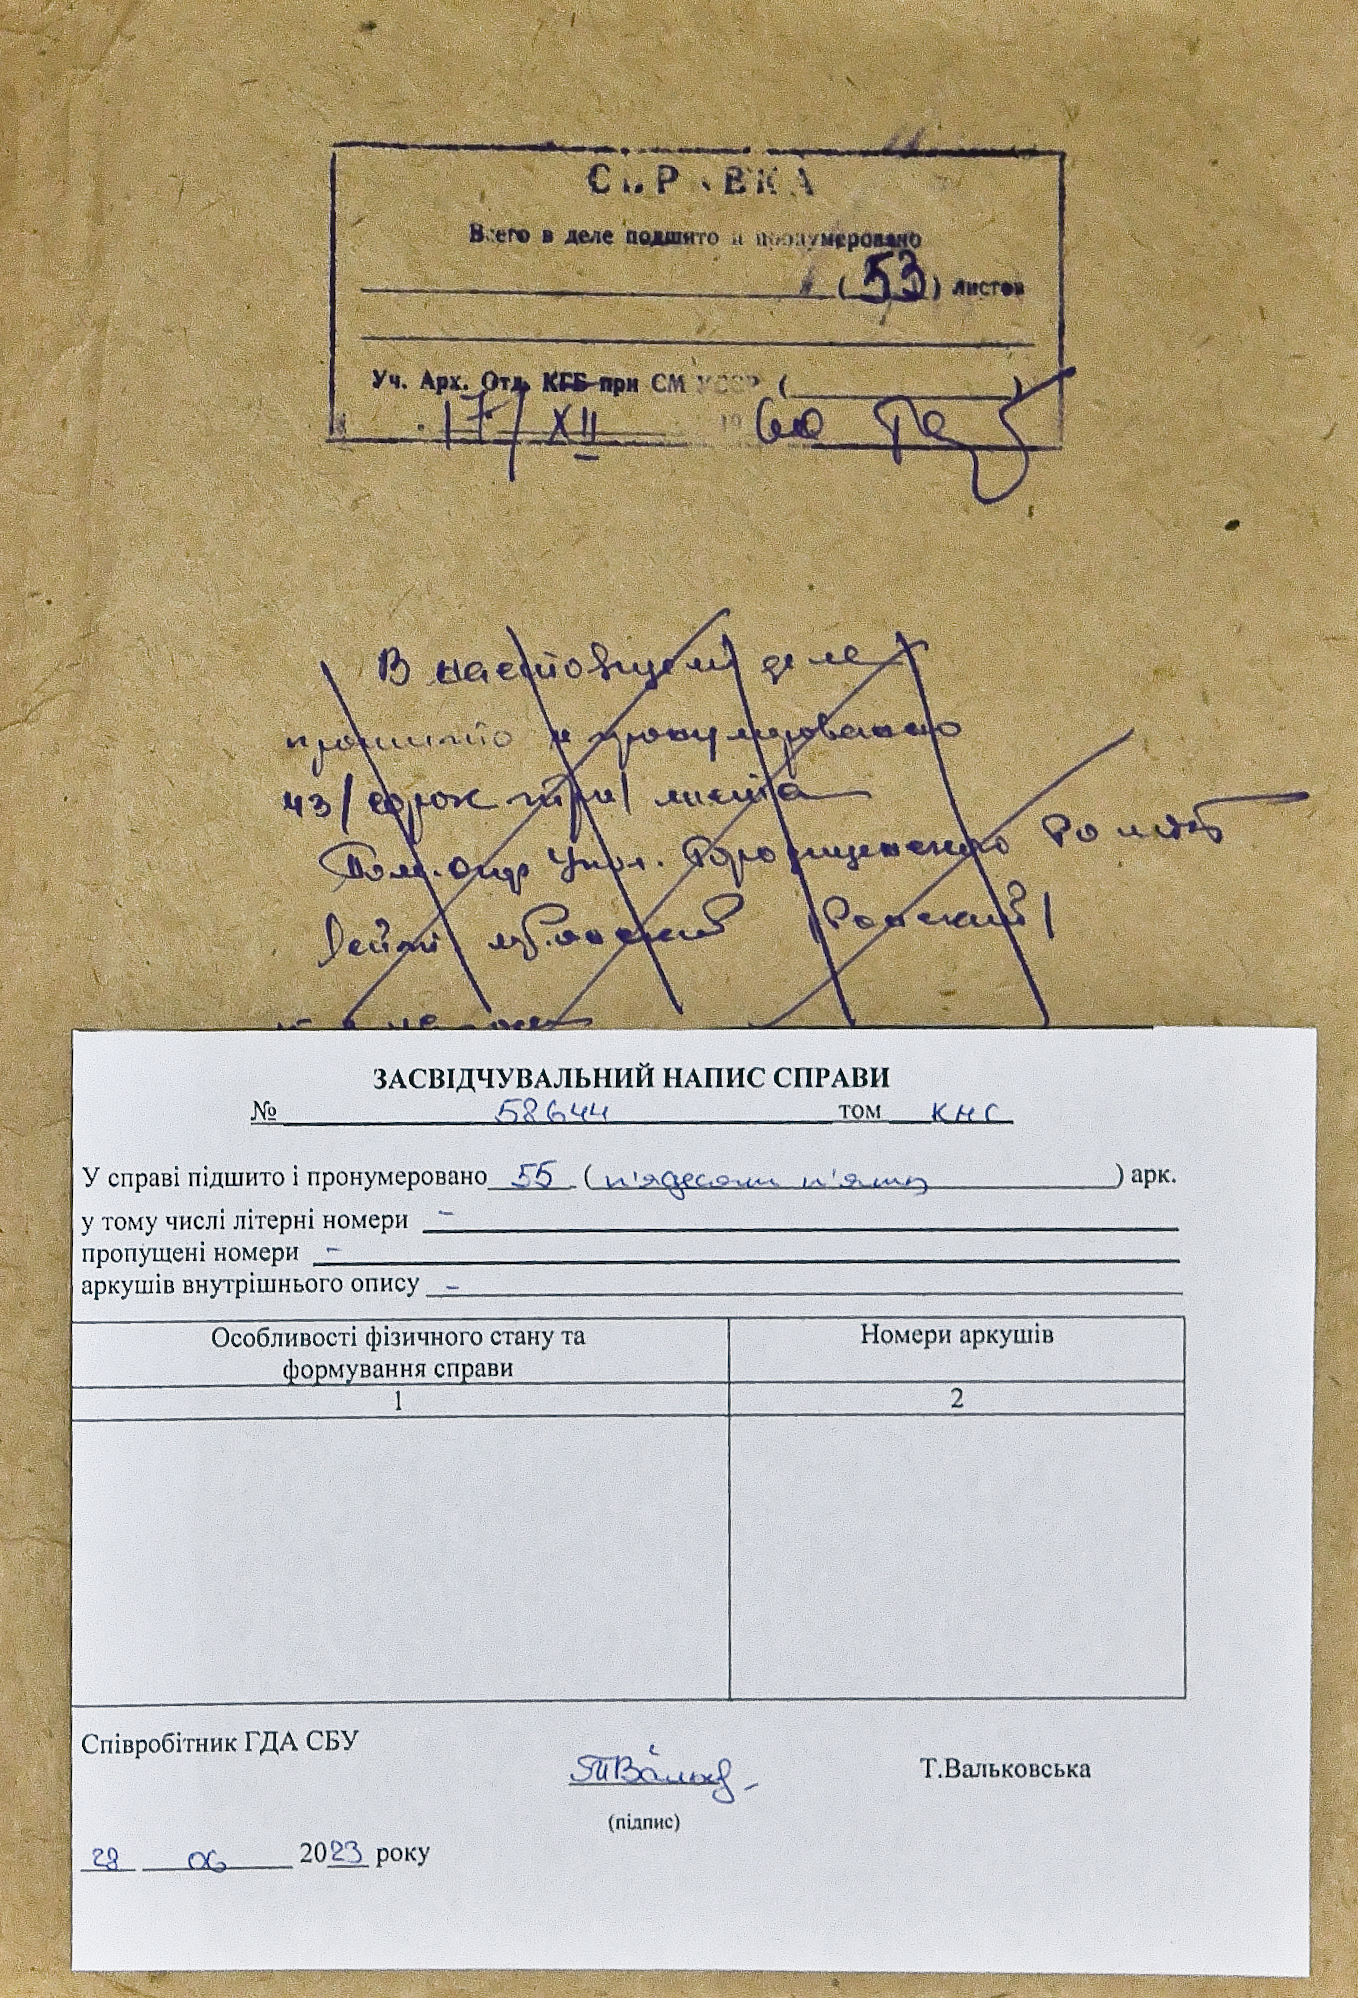 СПРАВКА
Всего в деле подшито и пронумеровано
(53) листов
Уч. Арх. Отд. КГБ при СМ УССР ( )
17/XII 1960
В настоящем деле
прошито и пронумеровано
43/сорок три/ листа
Пом. Опер Упол. Городищенского
ЗАСВІДЧУВАЛЬНИЙ НАПИС СПРАВИ
№ 58644 том КНС
У справі підшито і пронумеровано 55 (п'ядесят п'ять) арк.
у тому числі літерні номери –
пропущені номери –
аркушів внутрішнього опису –
Особливості фізичного стану та Номери аркушів
формування справи
1 2
Співробітник ГДА СБУ
Т.Вальковська
(підпис)
28 06 2023 року